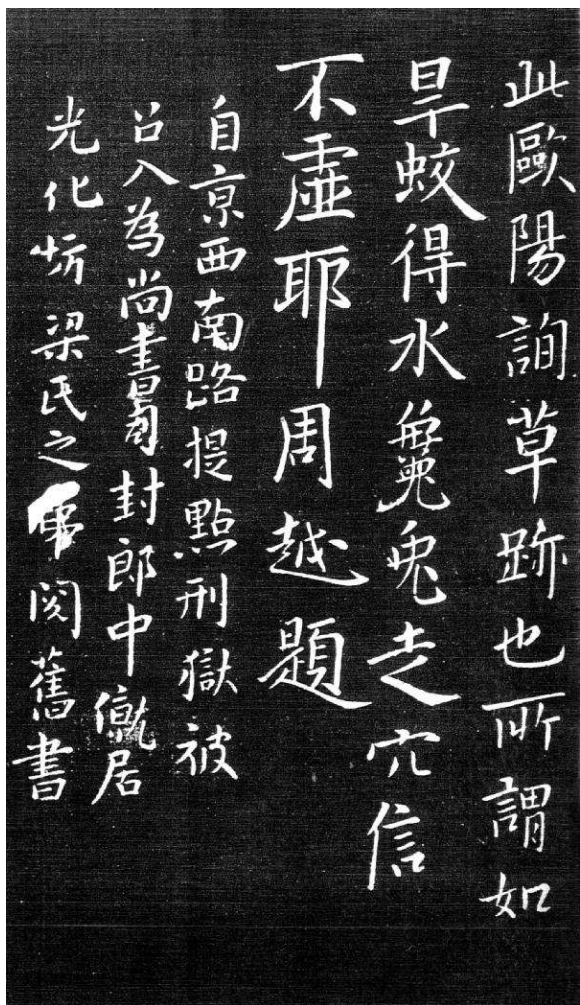 此歐陽詢草跡也所謂如
旱蛟得水毚兔走穴信
不虛耶周越題
自亰西南路提點刑獄被
召入為尚書司封郎中僦居
光化坊梁氏之閱舊書